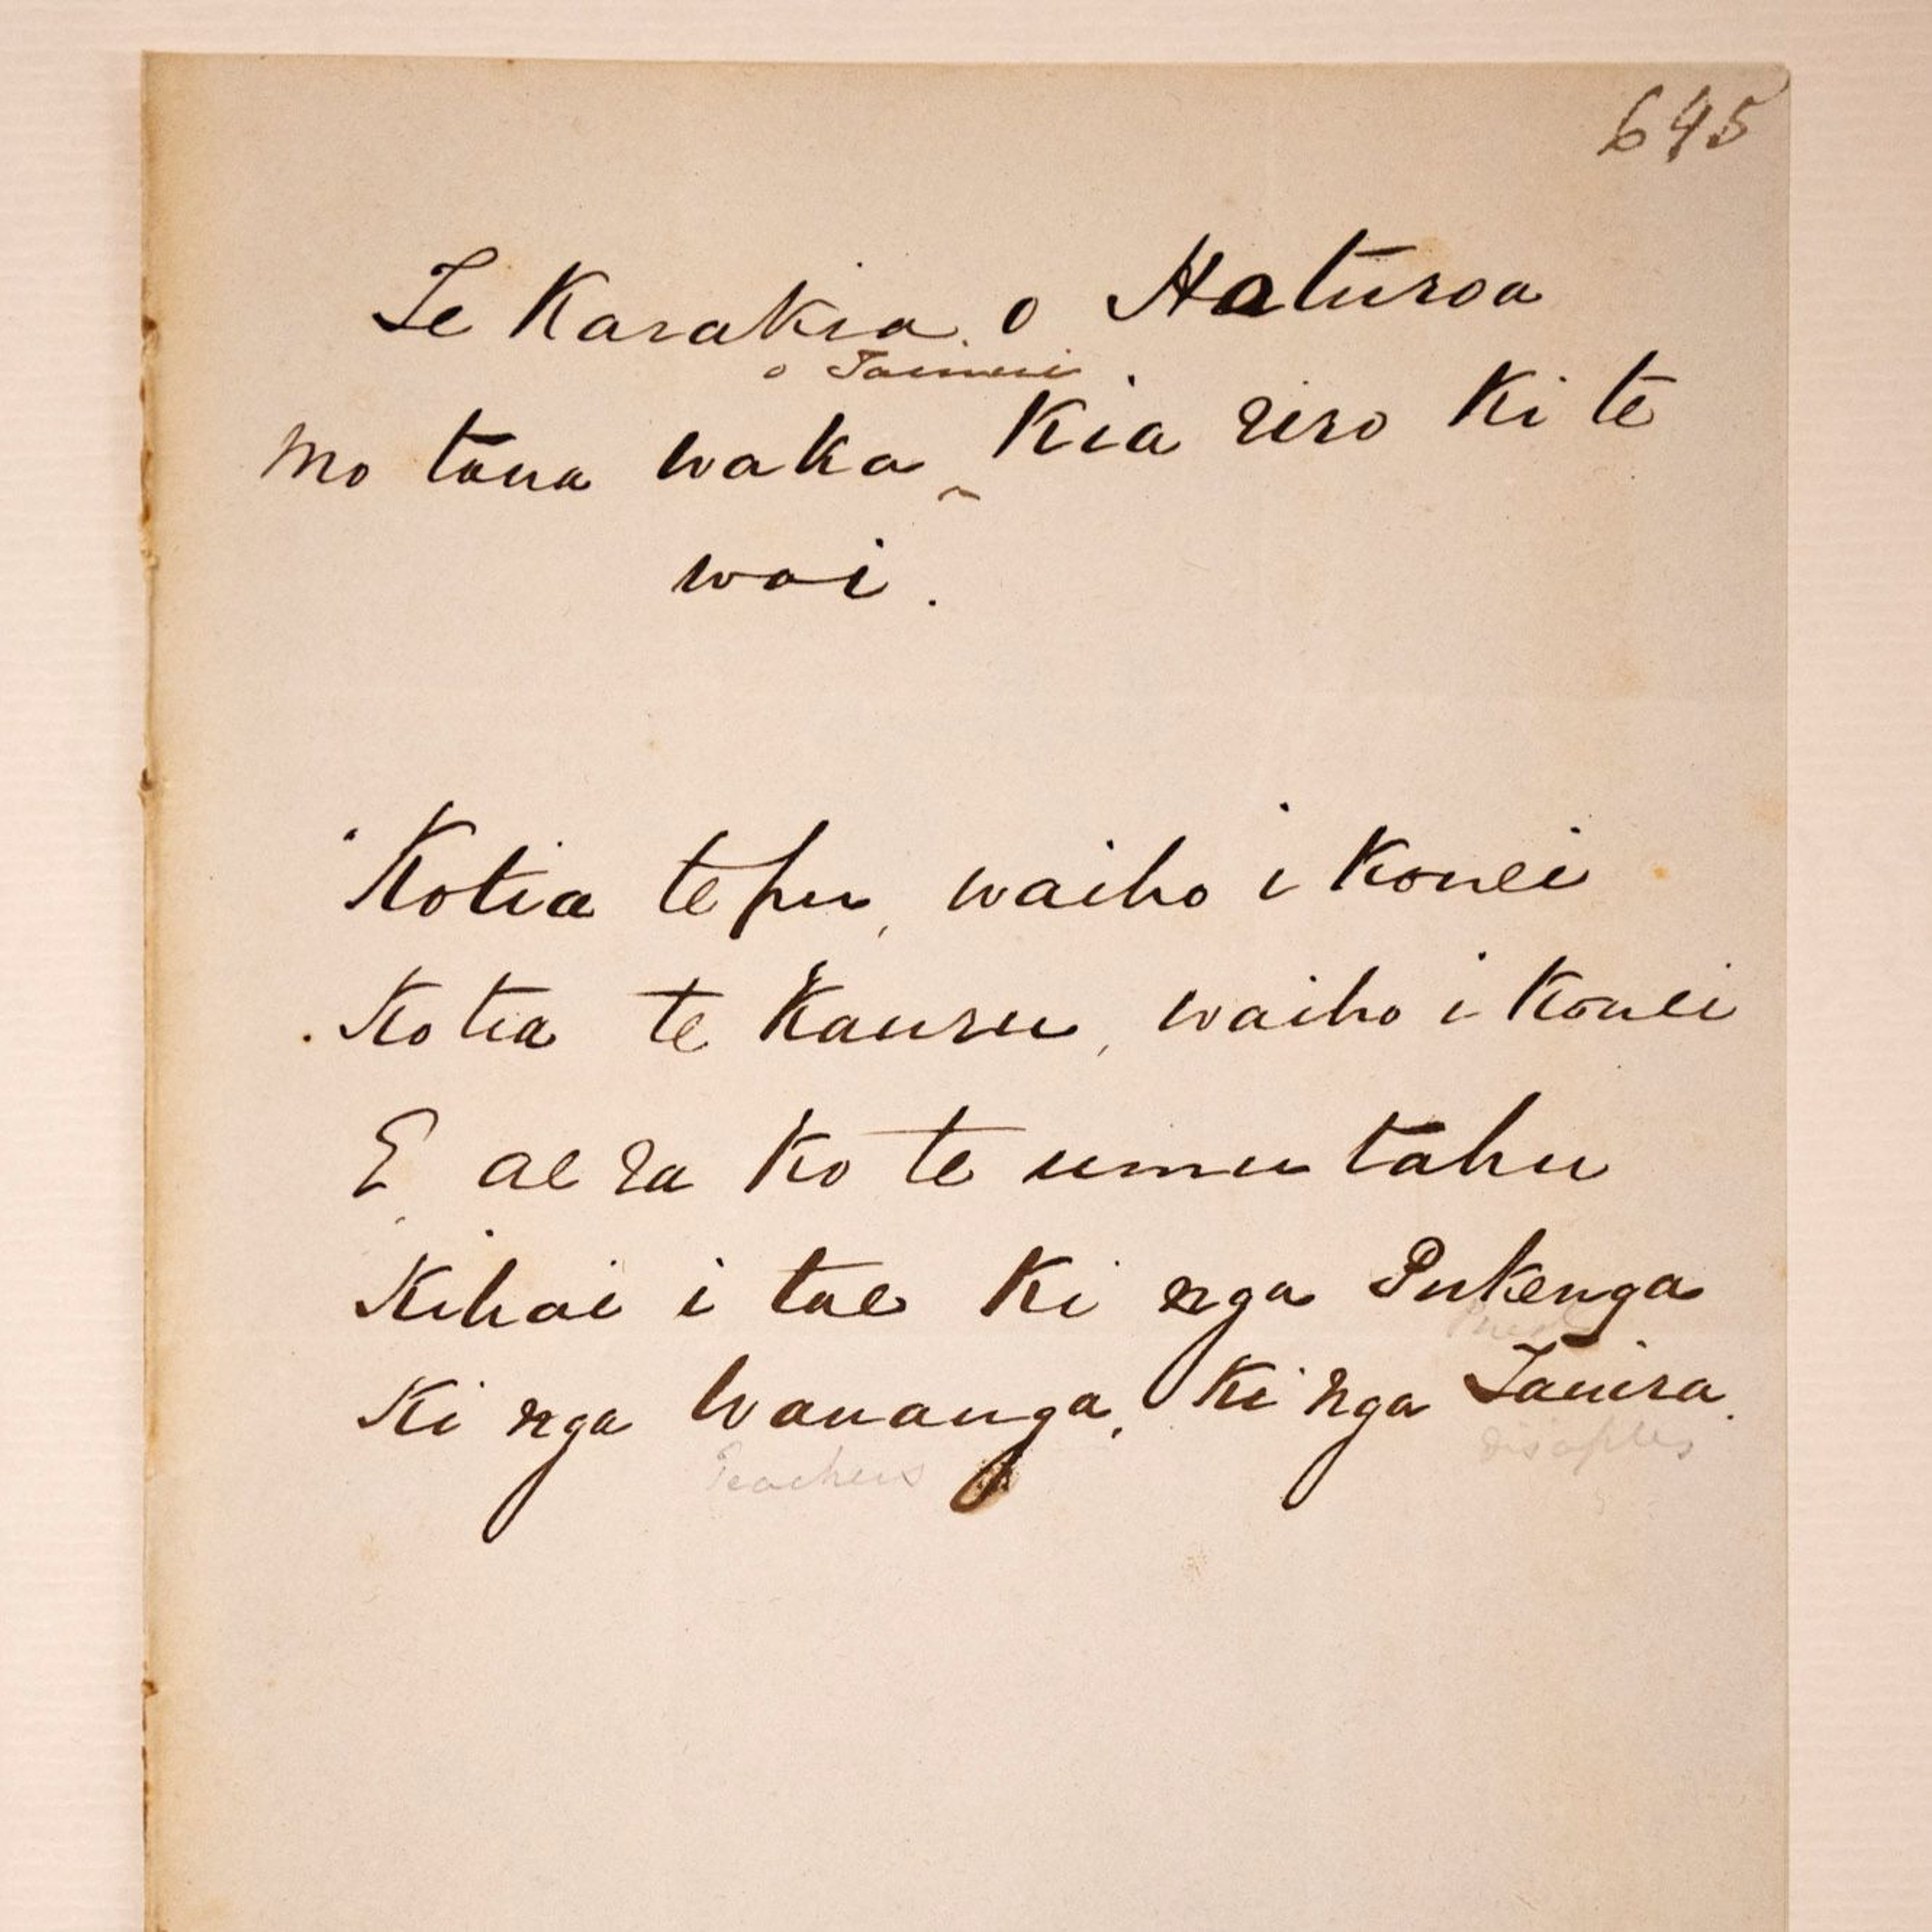 645
Te Karakia o Haturoa
o Tainui
mo tona waka ^ Kia riro Ki te
wai.
Kotia te pu, waiho i Konei
Kotia te Kauru, waiho i Konei
E ae ra Ko te umu tahu
Kihai i tae Ki nga Pukenga
Ki nga Wananga, Ki nga Tauira.
Teachers disciples